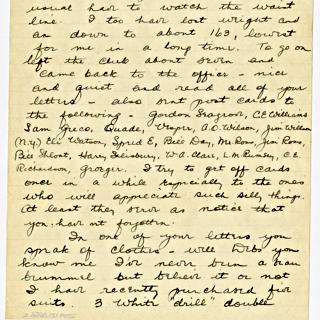 usual have to watch the waist
line. I too have lost weight and
am down to about 163, lowest
for me in a long time. To go on
left the club about seven and
came back to the office - nice
and quiet and read all of your
letters - also sent post cards to
the following - Gordon C.E. Williams
Sam Greco, Quade, Draper, A.O. Wilson, Jim William
(N.Y.) Eli Watson, Sprid E, Bill Day, Mr Ross, Jim Ross,
Bill Shloat, Harry Salisbury, W.A. Carr, L.M. Rumsey, C.E.
Richardson, Granger. I try to get off cards
once in a while especially to the ones
who will appreciate such silly things.
At least they serve as notice that
you have not forgotten.
In one of your letters you
speak of clothes - well Debs you
know me I've never been a beau
brummel but believe it or not
I have recently purchased five
suits. 3 white "drill" double